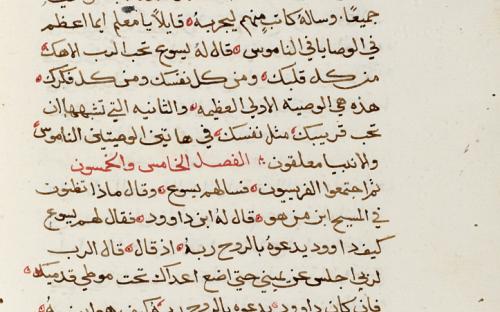 جميعًا. وساله كاتب منهم ليجربه قايلاً يا معلم ايما اعظم
في الوصايا في الناموس قال له يسوع تحب الرب الاهك
من كل قلبك ومن كل نفسك ومن كل فكرك
هذه هي الوصية الاولى العظيمه والثانيه التي تشبهها ان
تحب قريبك مثل نفسك في هاتين الوصيتين الناموس
والانبيا معلقون الفصل الخامس والخمسون
ثم اجتمعوا الفريسون فسالهم يسوع وقال ماذا تظنون
في المسيح ابن من هو قال له ابن داوود فقال لهم يسوع
كيف داوود يدعوه بالروح ربه اذ قال قال الرب
لربي اجلس عن يميني حتى اضع اعداك تحت موطي قدميك
فان كان داوود يدعوه بالروح ربه فكيف هو ابنه